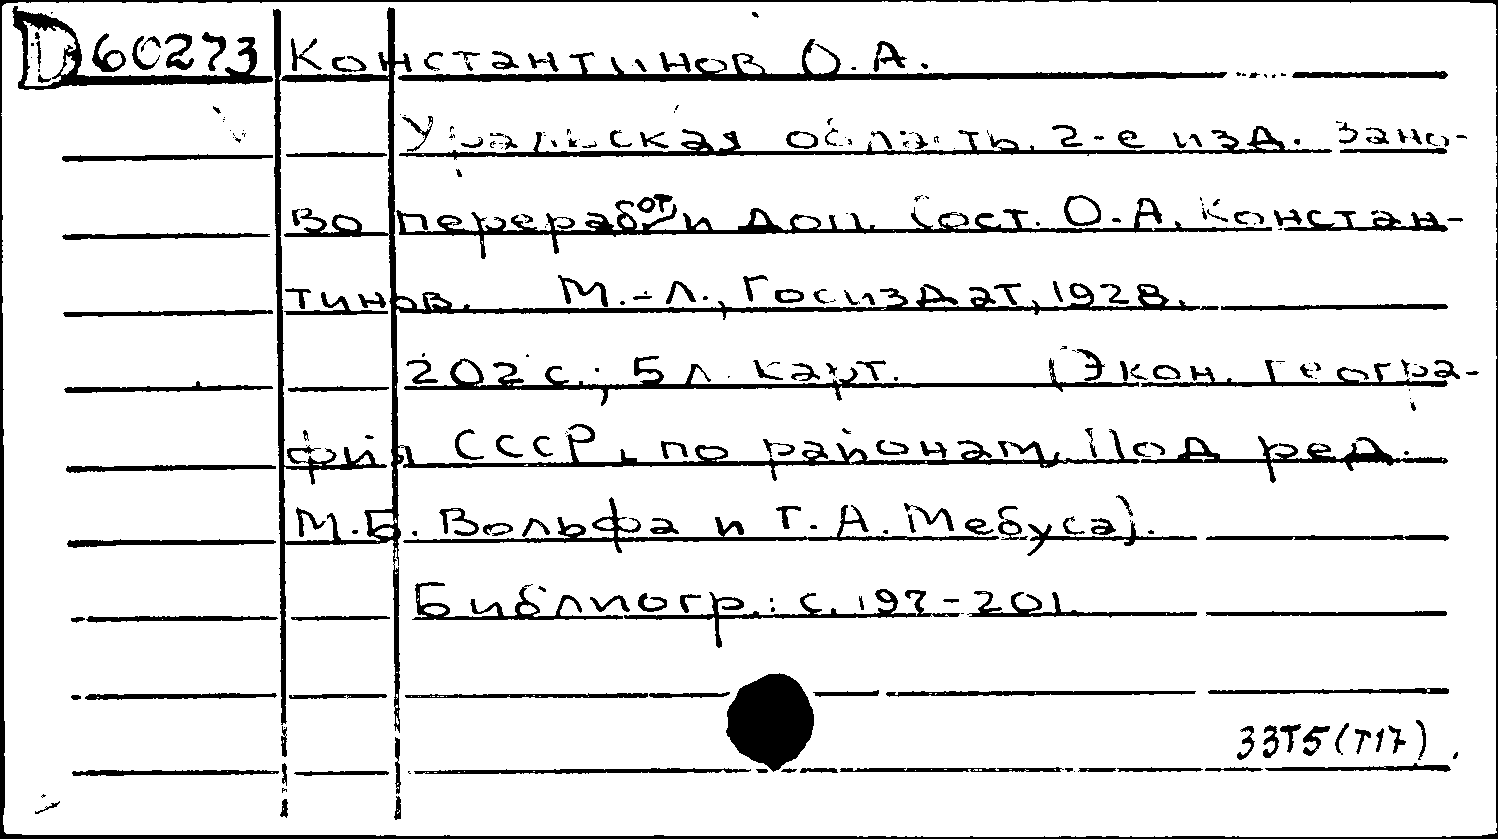 D 60273 Константинов О.А.
Уральская область. 2-е изд. зано-
во перераб от. и доп. Сост. О.А. Констан-
тинов. М.-Л., Госиздат, 1928.
202 с.; 5 л. карт. (Экон. геогра-
фия СССР, по районам, Под ред.
М.Б. Вольфа и Г.А. Мебуса).
Библиогр.: с. 197-201.
33Т5(Т17).